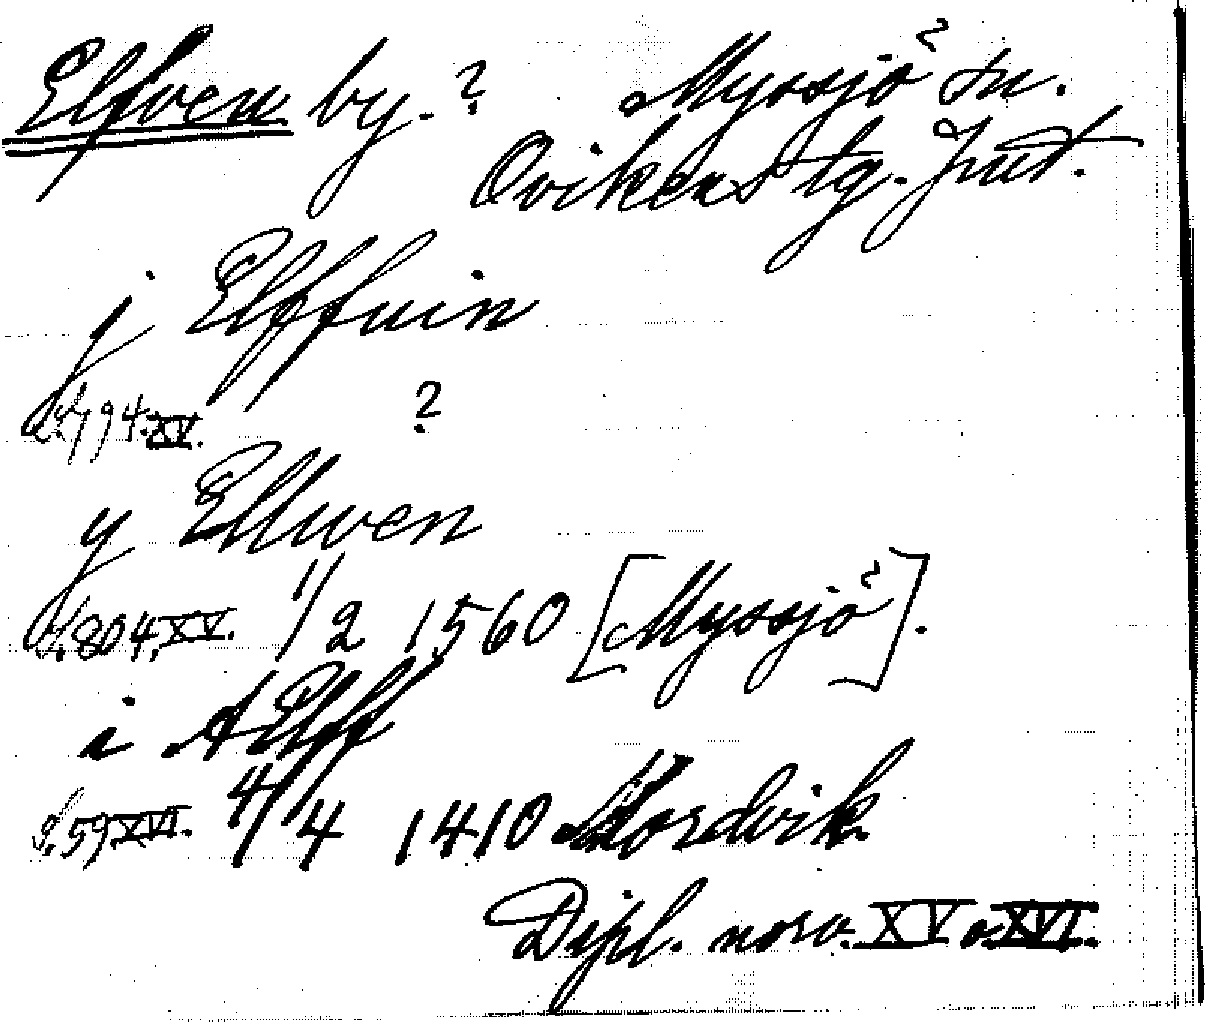 Elfven by. ? Myssjö ? sn.
Ovikens tg. Jmt.
j Elffuin
s. 194. XV. ?
y Ellwen
s. 804. XV. 1/2 1560 [Myssjö ?].
i A Elff
s. 59. XVI. 4/4 1410 Nordvik.
Dipl. norv. XV o. XVI.